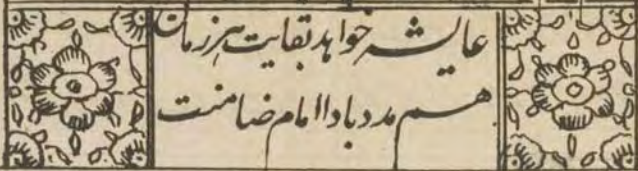 عایشه خواهد بقایت هر زمان
هم مدد بادا امام ضامنت